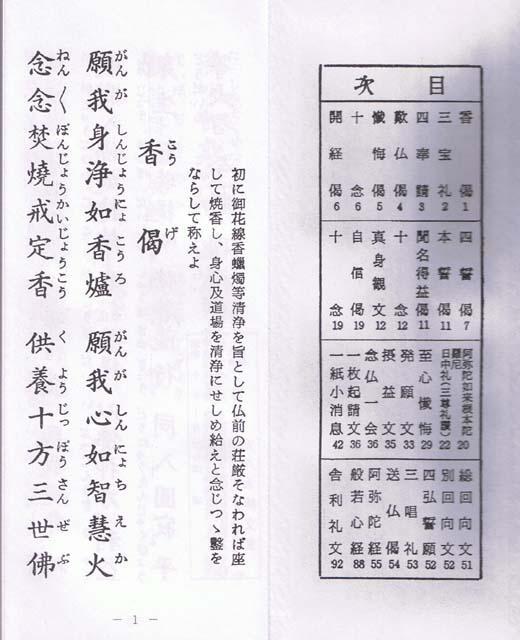 目次
香偈 1
三宝礼 2
四奉請 3
歎仏偈 4
懺悔偈 5
十念 6
開経偈 6
四誓偈 7
本誓偈 11
聞名得益偈 11
十念 12
真身観文 12
自信偈 19
十念 19
阿弥陀如来根本陀羅尼 20
日中礼(三尊礼讃) 22
至心懺悔 29
発願文 33
摂益文 35
念仏一会 36
一枚起請文 36
一紙小消息 42
総回向文 51
別回向文 52
四弘誓願 52
三唱礼 53
送仏偈 54
阿弥陀経 55
般若心経 88
舎利礼文 92
初に御花線香蠟燭等清浄を旨として仏前の荘厳そなわれば座
して焼香し、身心及道場を清浄にせしめ給えと念じつゝ鏧を
ならして称えよ
こうげ
香偈
がんが しんじょうにょ こうろ がんが しんにょちえか
願我身浄如香爐 願我心如智慧火
ねん〱 ぼんじょうかいじょうこう くようじっぽうさんぜぶ
念念焚焼戒定香 供養十方三世佛
— 1 —